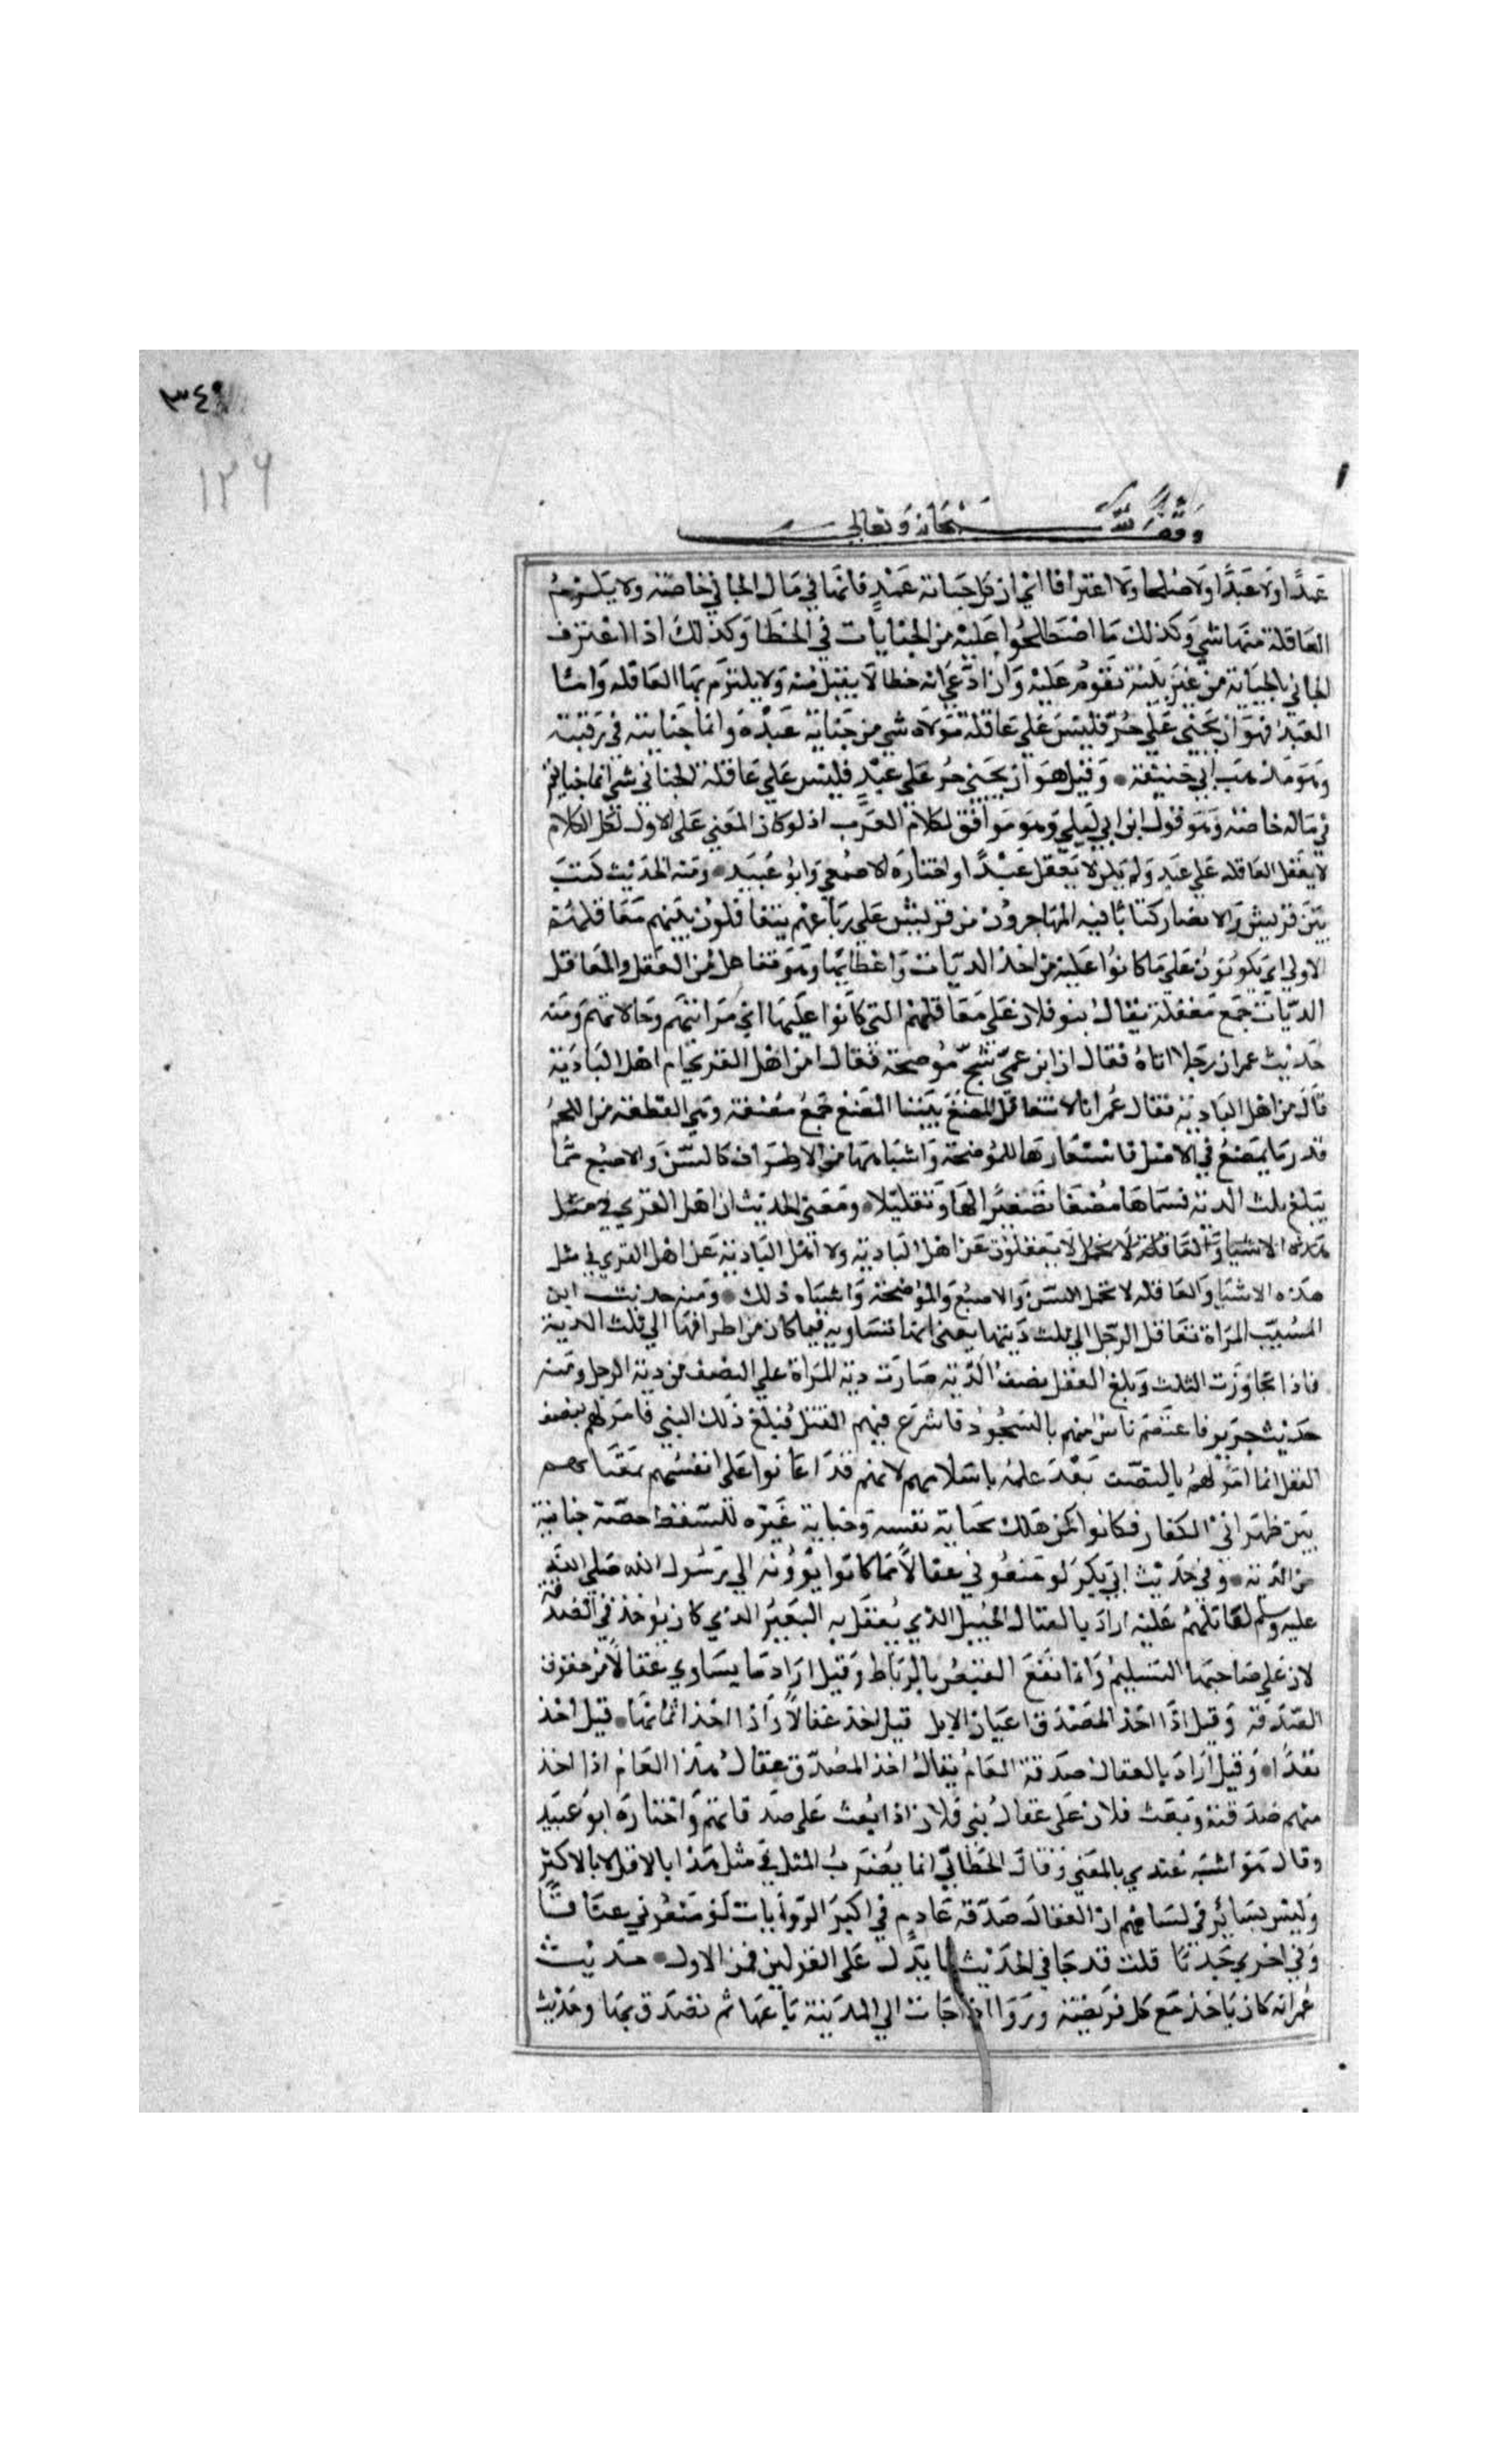 ٣٤٩
١٢٦
وقف لله سبحانه وتعالى
عمدا ولا عبدا ولا صلحا ولا اعترافا اي ان كل جناية عمد فانها في مال الجاني خاصة ولا يلزم
العاقلة منها شي وكذلك ما اصطلحوا عليه من الجنايات في الخطا وكذلك اذا اعترف
الجاني بالجناية من غير بينة تقوم عليه وان ادعي انه خطا لا يقبل منه ولا يلزم بها العاقله واما
العبد فهو ان يجني علي حر فليس علي عاقلة مولاه شي من جناية عبده وانما جنايته في رقبته
وهو مذهب ابي حنيفة وقيل هو ان يجني حر علي عبد فليس علي عاقلة الجاني شي انما جنايته
في ماله خاصة وهو قول ابن ابي ليلي وهو موافق لكلام العرب اذ لو كان المعني علي الاول لكان الكلام
لا يعقل العاقله علي عبد ولم يكن لا يعقل عبدا واختاره الاصمعي وابو عبيد ومنه الحديث كتب
بين قريش والانصار كتابا فيه المهاجرون من قريش علي رباعهم يتعاقلون بينهم معاقلهم
الاولي اي يكونون علي ما كانوا عليه من اخذ الديات واعطائها وهو تفاعل من العقل والمعاقل
الديات جمع معقلة يقال بنو فلان علي معاقلهم التي كانوا عليها اي مراتبهم وحالاتهم ومنه
حديث عمر ان رجلا اتاه فقال ان ابن عمي شج موضحة فقال امن اهل القري ام اهل البادية
قال من اهل البادية فقال عمر انا لا نتعاقل المضغ بيننا المضغ جمع مضغة وهي القطعة من اللحم
قدر ما يمضغ في الاصل فاستعارها للموضحة واشباهها من الاطراف كالسن والاصبع مما
يبلغ ثلث الدية فسماها مضغا تصغيرا لها وتقليلا ومعني الحديث ان اهل القري في مثل
هذه الاشيا والعاقلة لا تحمل لا يعقلون عن اهل البادية ولا اهل البادية عن اهل القري في مثل
هذه الاشيا والعاقله لا تحمل السن والاصبع والموضحة واشباه ذلك ومنه حديث ابن
المسيب المراة تعاقل الرجل الي ثلث ديتها يعني انها تساويه فيما كان من اطرافها الي ثلث الدية
فاذا تجاوزت الثلث وبلغ العقل نصف الدية صارت دية المراة علي النصف من دية الرجل ومنه
حديث جرير فاعتصم ناس منهم بالسجود فاشرع فيهم القتل فبلغ ذلك النبي فامر لهم بنصف
العقل انما امر لهم بالنصف بعد علمه باسلامهم لانهم قد اعانوا علي انفسهم بمقامهم
بين ظهراني الكفار فكانوا كمن هلك بجناية نفسه وجناية غيره فتسقط حصة جناية
من الدية وفي حديث ابي بكر لو منعوني عقالا مما كانوا يؤدونه الي رسول الله صلي الله
عليه وسلم لقاتلتهم عليه اراد بالعقال الحبل الذي يعقل به البعير الذي كان يؤخذ في الصدقة
لان علي صاحبها التسليم وانما يقع القبض بالرباط وقيل اراد ما يساوي عقالا من حقوق
الصدقة وقيل اذا اخذ المصدق اعيان الابل قيل اخذ عقالا واذا اخذ اثمانها قيل اخذ
نقدا وقيل اراد بالعقال صدقة العام يقال اخذ المصدق عقال هذا العام اذا اخذ
منهم صدقته وبعث فلان علي عقال بني فلان اذا بعث علي صدقاتهم واختاره ابو عبيد
وقال هو اشبه عندي بالمعني وقال الخطابي انما يضرب المثل في مثل هذا بالاقل لا بالاكثر
وليس بسائر في لسانهم ان العقال صدقة عام وفي اكثر الروايات لو منعوني عناقا
وفي اخري جديا قلت قد جا في الحديث ما يدل علي القولين فمن الاول حديث
عمر انه كان ياخذ مع كل فريضة وروا فاذا جات الي المدينة باعها ثم تصدق بها وحديث